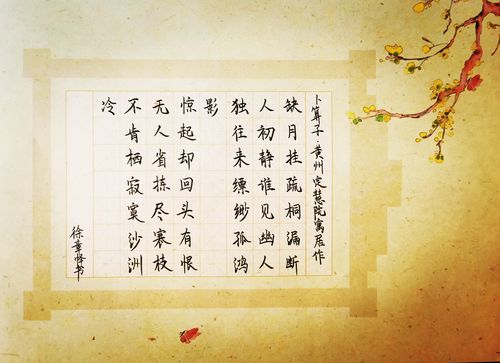 卜算子·黄州定慧院寓居作
缺月挂疏桐漏断
人初静谁见幽人
独往来缥缈孤鸿
影
惊起却回头有恨
无人省拣尽寒枝
不肯栖寂寞沙洲
冷
徐书